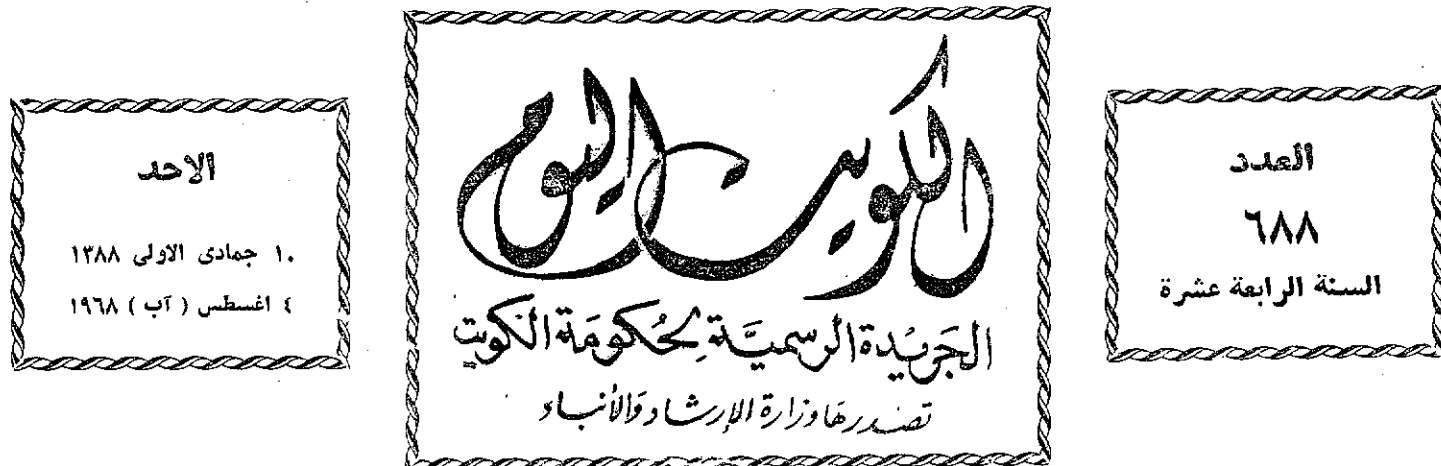 العدد
٦٨٨
السنة الرابعة عشرة
الكويت اليوم
الجريدة الرسمية لحكومة الكويت
تصدرها وزارة الإرشاد والأنباء
الاحد
١٠ جمادى الاولى ١٣٨٨
٤ اغسطس ( آب ) ١٩٦٨